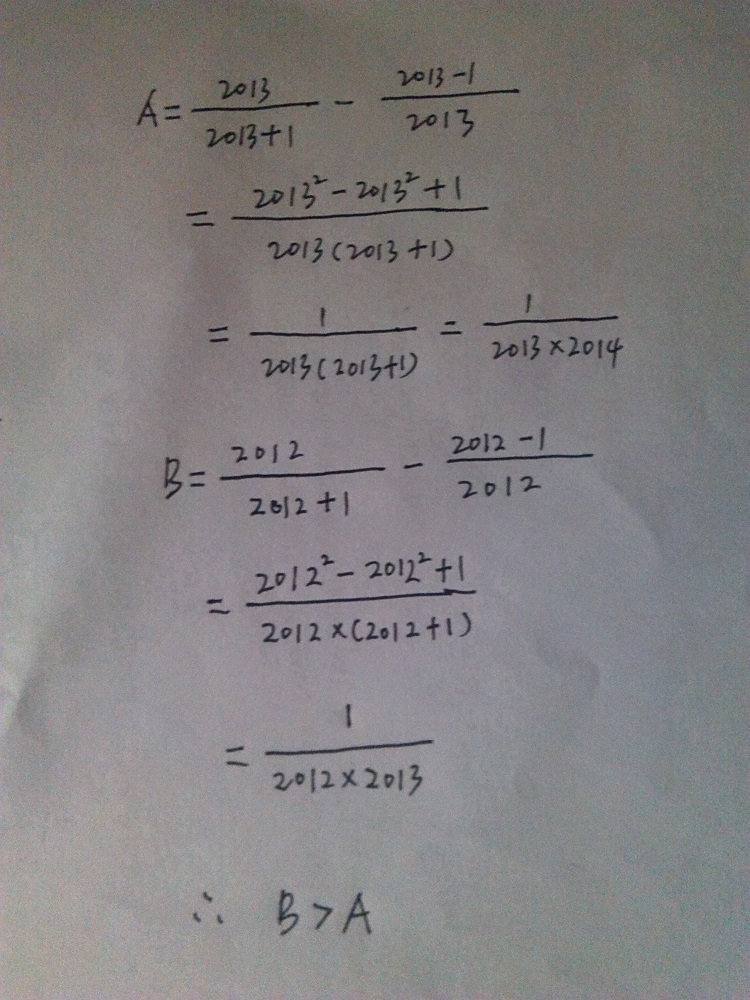 A = 2013/(2013+1) - (2013-1)/2013
= (2013² - 2013² + 1)/(2013(2013+1))
= 1/(2013(2013+1)) = 1/(2013×2014)
B = 2012/(2012+1) - (2012-1)/2012
= (2012² - 2012² + 1)/(2012×(2012+1))
= 1/(2012×2013)
∴ B > A